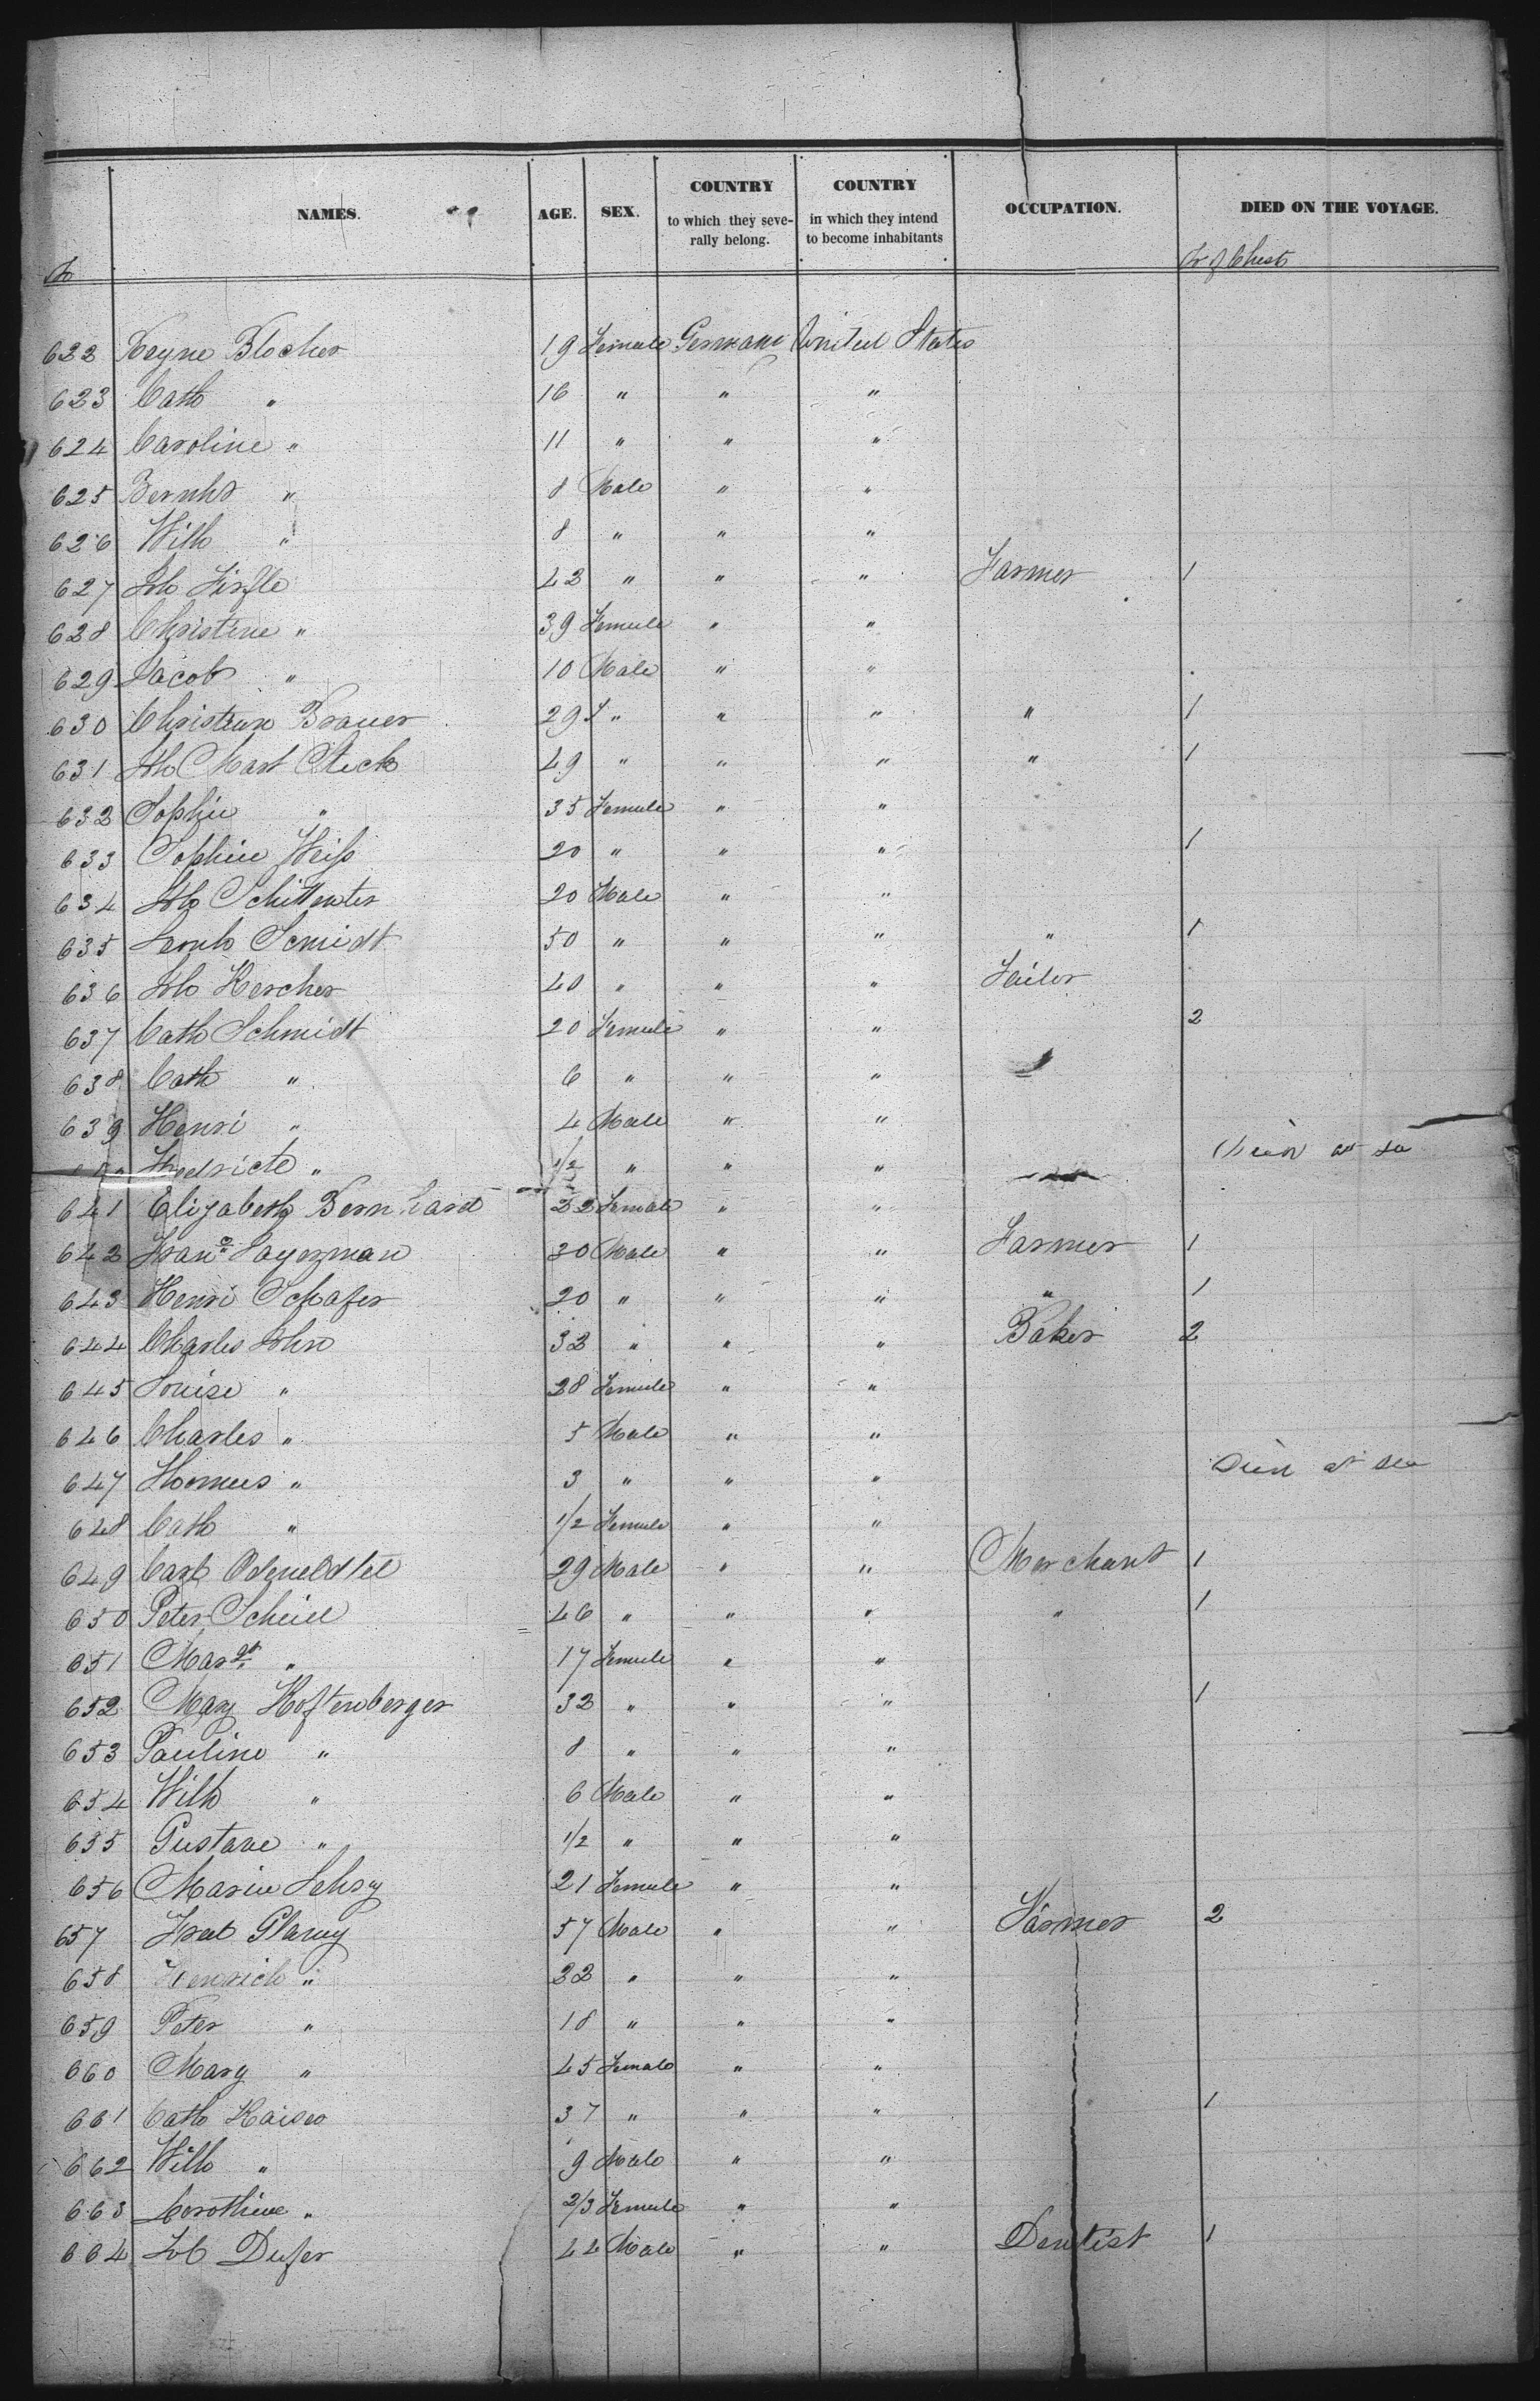 NAMES. AGE. SEX. COUNTRY to which they severally belong. COUNTRY in which they intend to become inhabitants OCCUPATION. DIED ON THE VOYAGE.
No
622 Blocher 19 Female Germany United States
623 Cath " 16 " " "
624 Caroline " 11 " " "
625 Bernhd " 8 Male " "
626 Wilh " 8 " " "
627 Joh 43 " " " Farmer 1
628 Christine " 39 Female " "
629 Jacob " 10 Male " "
630 Christian Brauer 29 " " " " 1
631 Joh Mart 49 " " " " 1
632 Sophie " 35 Female " "
633 Sophie Weiss 20 " " " 1
634 Joh 20 Male " "
635 Scmidt 50 " " " " 1
636 Joh Kercher 40 " " " Tailor
637 Cath Schmidt 20 Female " " 2
638 Cath " 6 " " "
639 Henri " 4 Male " "
" 1/2 " " " Died at sea
641 Elizabeth Bernhard 22 Female " "
642 30 Male " " Farmer 1
643 Henri Schafer 20 " " " " 1
644 Charles John 32 " " " Baker 2
645 Louise " 28 Female " "
646 Charles " 5 Male " "
647 Thomas " 3 " " " Died at sea
648 Cath " 1/2 Female " "
649 Carl 29 Male " " Merchant 1
650 Peter 46 " " " " 1
651 Margt " 17 Female " "
652 Mary Hoffenberger 32 " " " 1
653 Pauline " 8 " " "
654 Wilh " 6 Male " "
655 Gustave " 1/2 " " "
656 Maria 21 Female " "
657 57 Male " " Farmer 2
658 Henrich " 22 " " "
659 Peter " 18 " " "
660 Mary " 45 Female " "
661 Cath Kaiser 37 " " " 1
662 Wilh " 9 Male " "
663 " 2/3 Female " "
664 44 Male " " Dentist 1